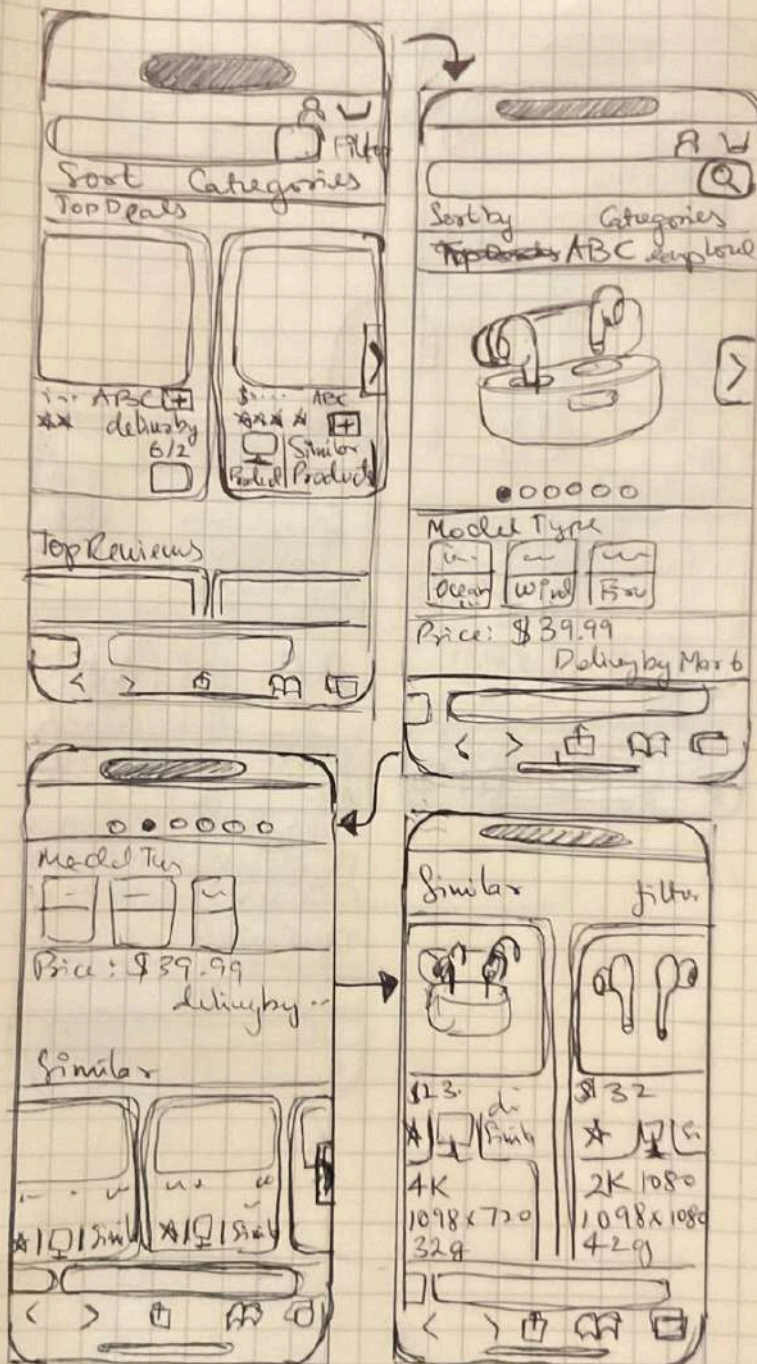 Filter
Sort Categories
Top Deals
ABC +
delivery by
6/2
$ ABC
+
Similar
Products
Top Reviews
Sort by Categories
ABC
Model Type
Ocean Wind
Price: $39.99
Delivery by Mar 6
Model
Price: $39.99
delivery by ..
Similar
Simil
Simil
Similar filter
$123.
di
Simil
4K
1098 x 720
32g
$132
Si
2K 1080
1098 x 1080
42g